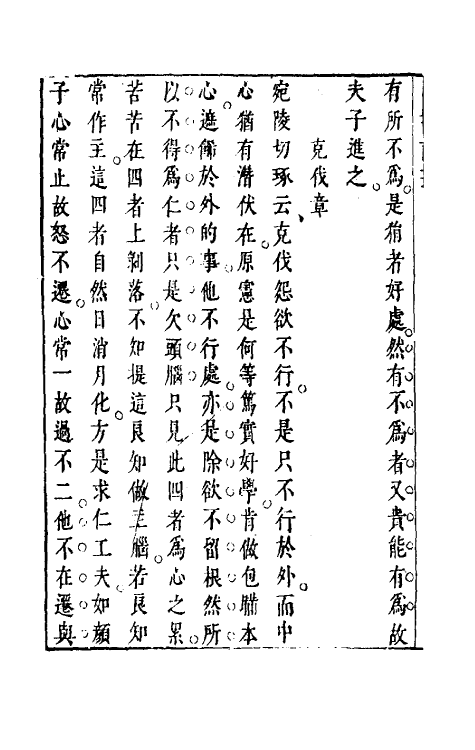 有所不為是狷者好處然有不為者又貴能有為故
夫子進之
克伐章
宛陵切琢云克伐怨欲不行不是只不行於外而中
心猶有潛伏在原憲是何等篤實好學肯做包瞞本
心遮飾於外的事他不行處亦是除欲不留根然所
以不得為仁者只是欠頭腦只見此四者為心之累
苦苦在四者上剝落不知提這良知做主腦若良知
常作主這四者自然日消月化方是求仁工夫如顏
子心常止故怒不遷心常一故過不二他不在遷與